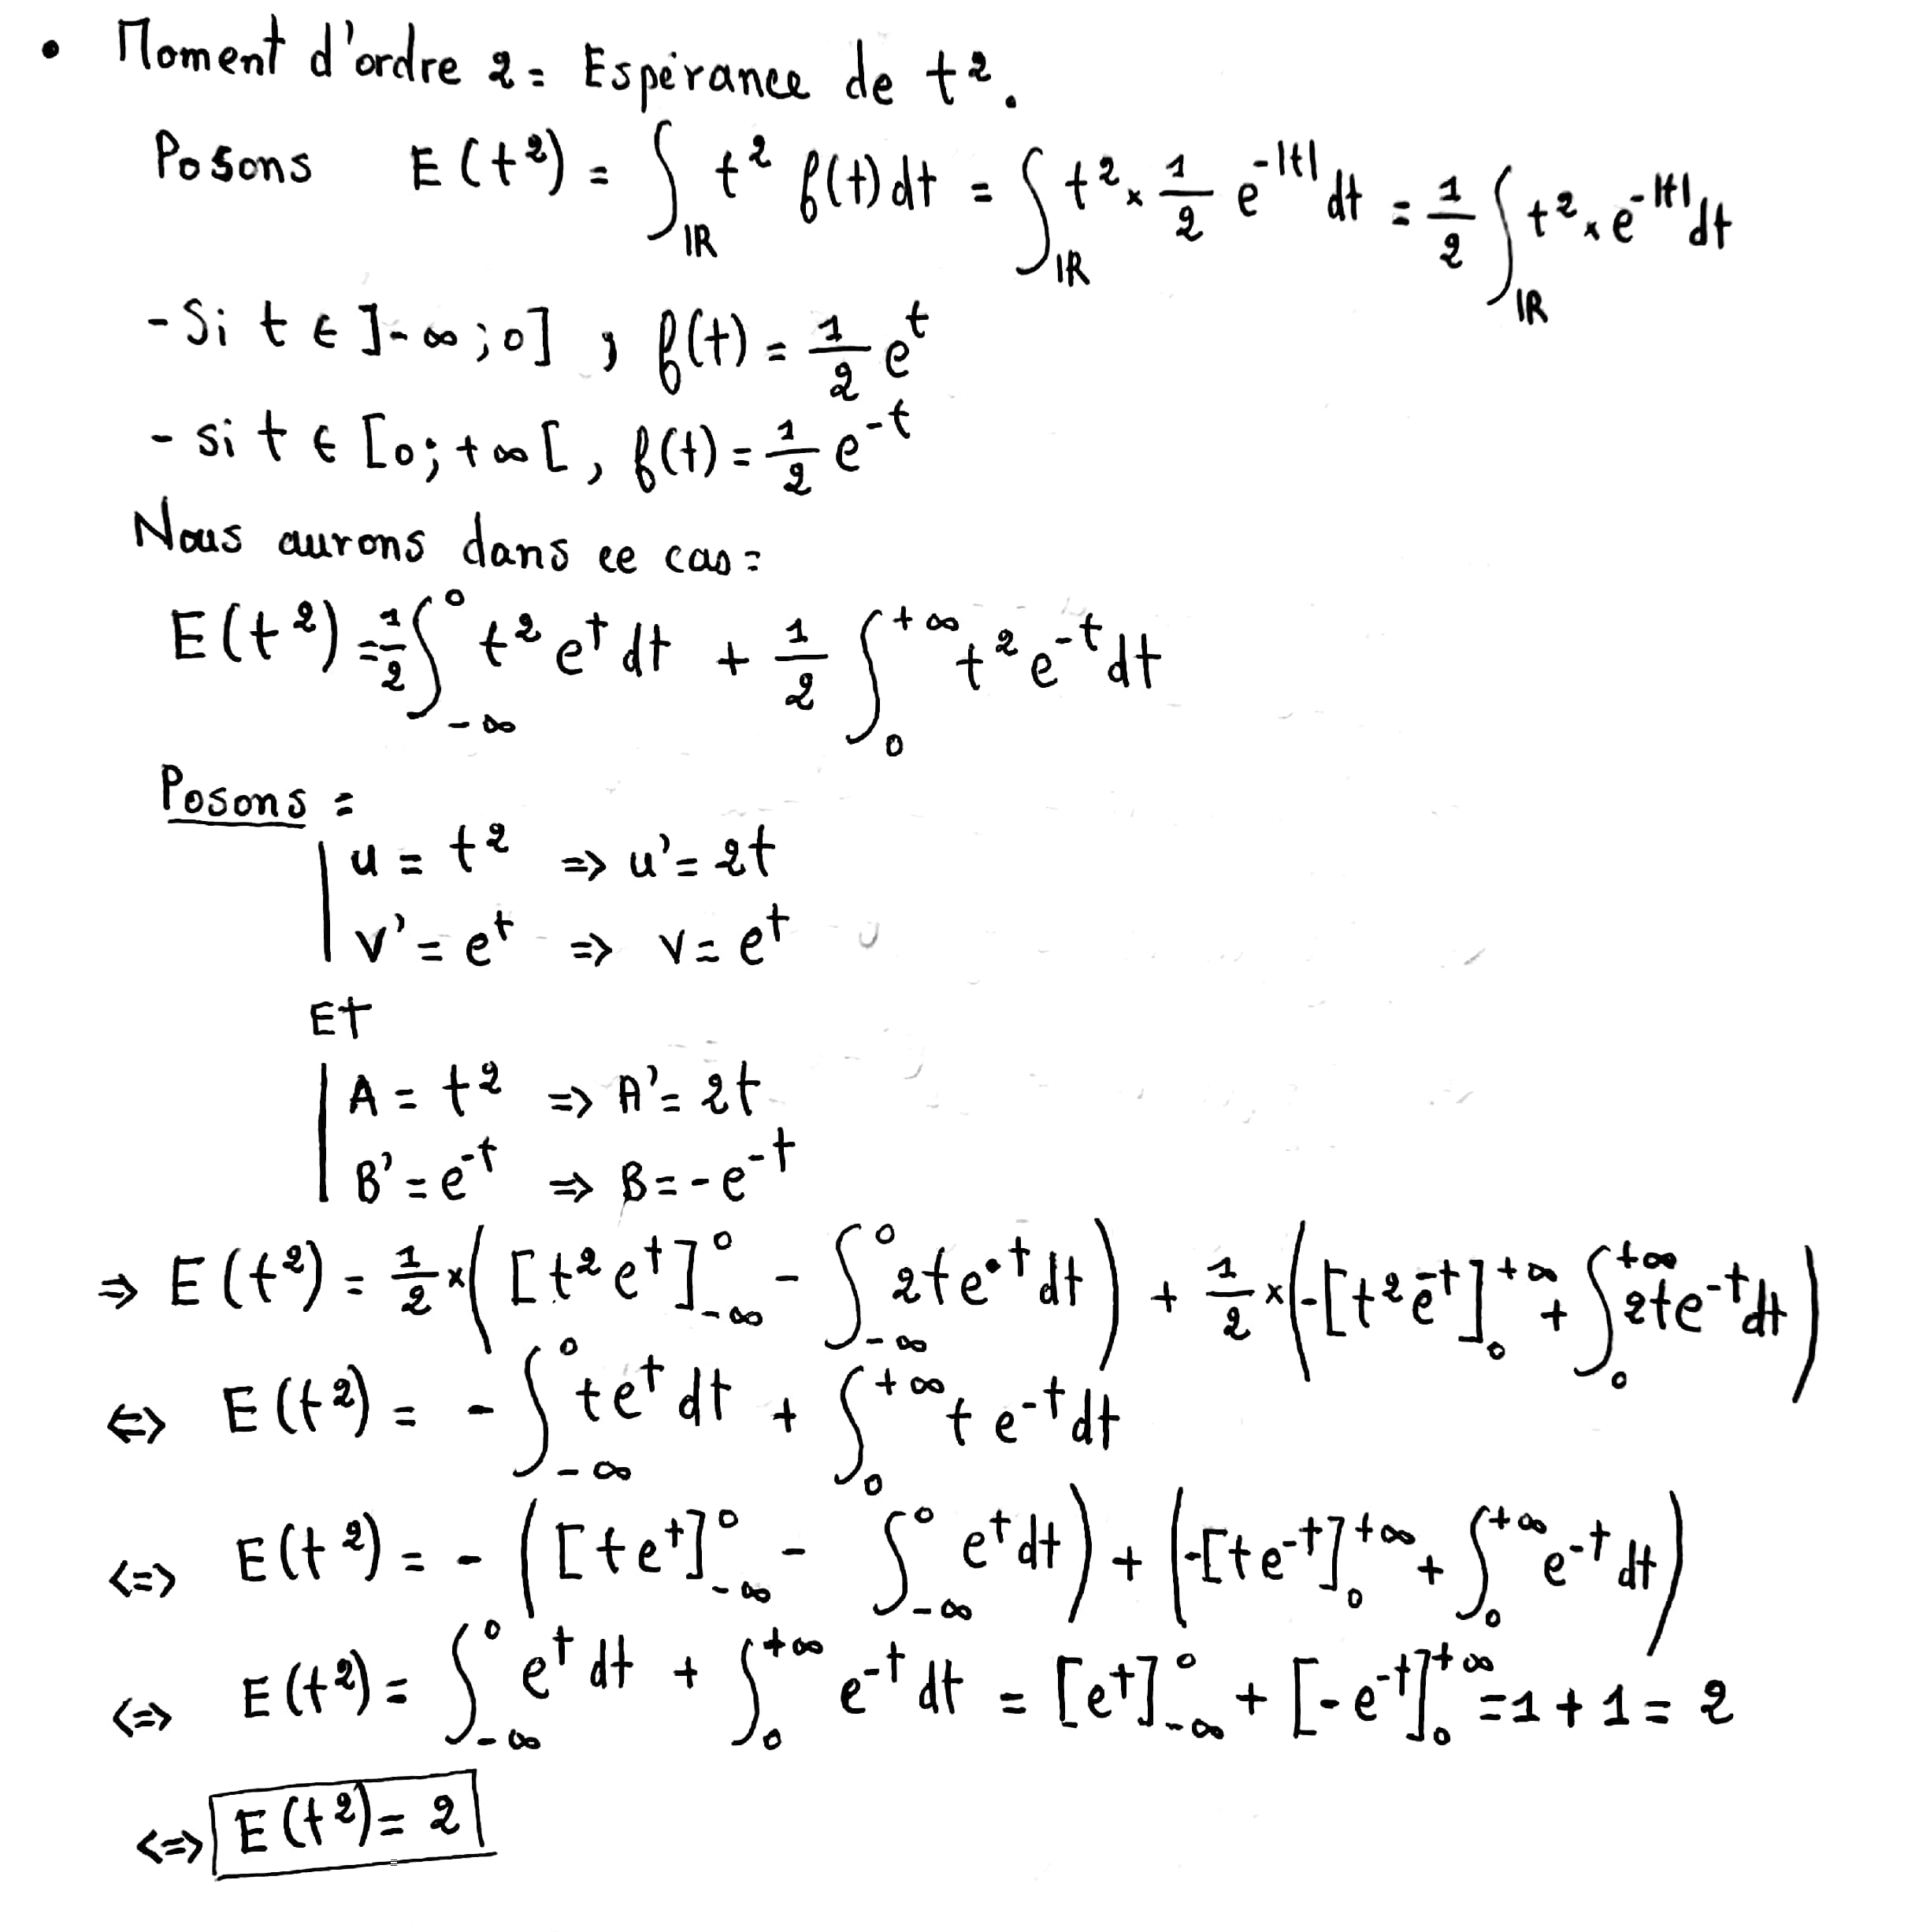 • Moment d'ordre 2 = Espérance de t².
Posons E(t²) = ∫_ℝ t² f(t) dt = ∫_ℝ t² × 1/2 e^(-|t|) dt = 1/2 ∫_ℝ t² × e^(-|t|) dt
- Si t ∈ ]-∞ ; 0] , f(t) = 1/2 e^t
- si t ∈ [0 ; +∞[ , f(t) = 1/2 e^(-t)
Nous aurons dans ce cas =
E(t²) = 1/2 ∫_(-∞)^0 t² e^t dt + 1/2 ∫_0^(+∞) t² e^(-t) dt
Posons =
u = t² => u' = 2t
v' = e^t => v = e^t
Et
A = t² => A' = 2t
B' = e^(-t) => B = -e^(-t)
=> E(t²) = 1/2 × ( [t² e^t]_(-∞)^0 - ∫_(-∞)^0 2t e^t dt ) + 1/2 × ( -[t² e^(-t)]_0^(+∞) + ∫_0^(+∞) 2t e^(-t) dt )
<=> E(t²) = - ∫_(-∞)^0 t e^t dt + ∫_0^(+∞) t e^(-t) dt
<=> E(t²) = - ( [t e^t]_(-∞)^0 - ∫_(-∞)^0 e^t dt ) + ( -[t e^(-t)]_0^(+∞) + ∫_0^(+∞) e^(-t) dt )
<=> E(t²) = ∫_(-∞)^0 e^t dt + ∫_0^(+∞) e^(-t) dt = [e^t]_(-∞)^0 + [-e^(-t)]_0^(+∞) = 1 + 1 = 2
<=> E(t²) = 2